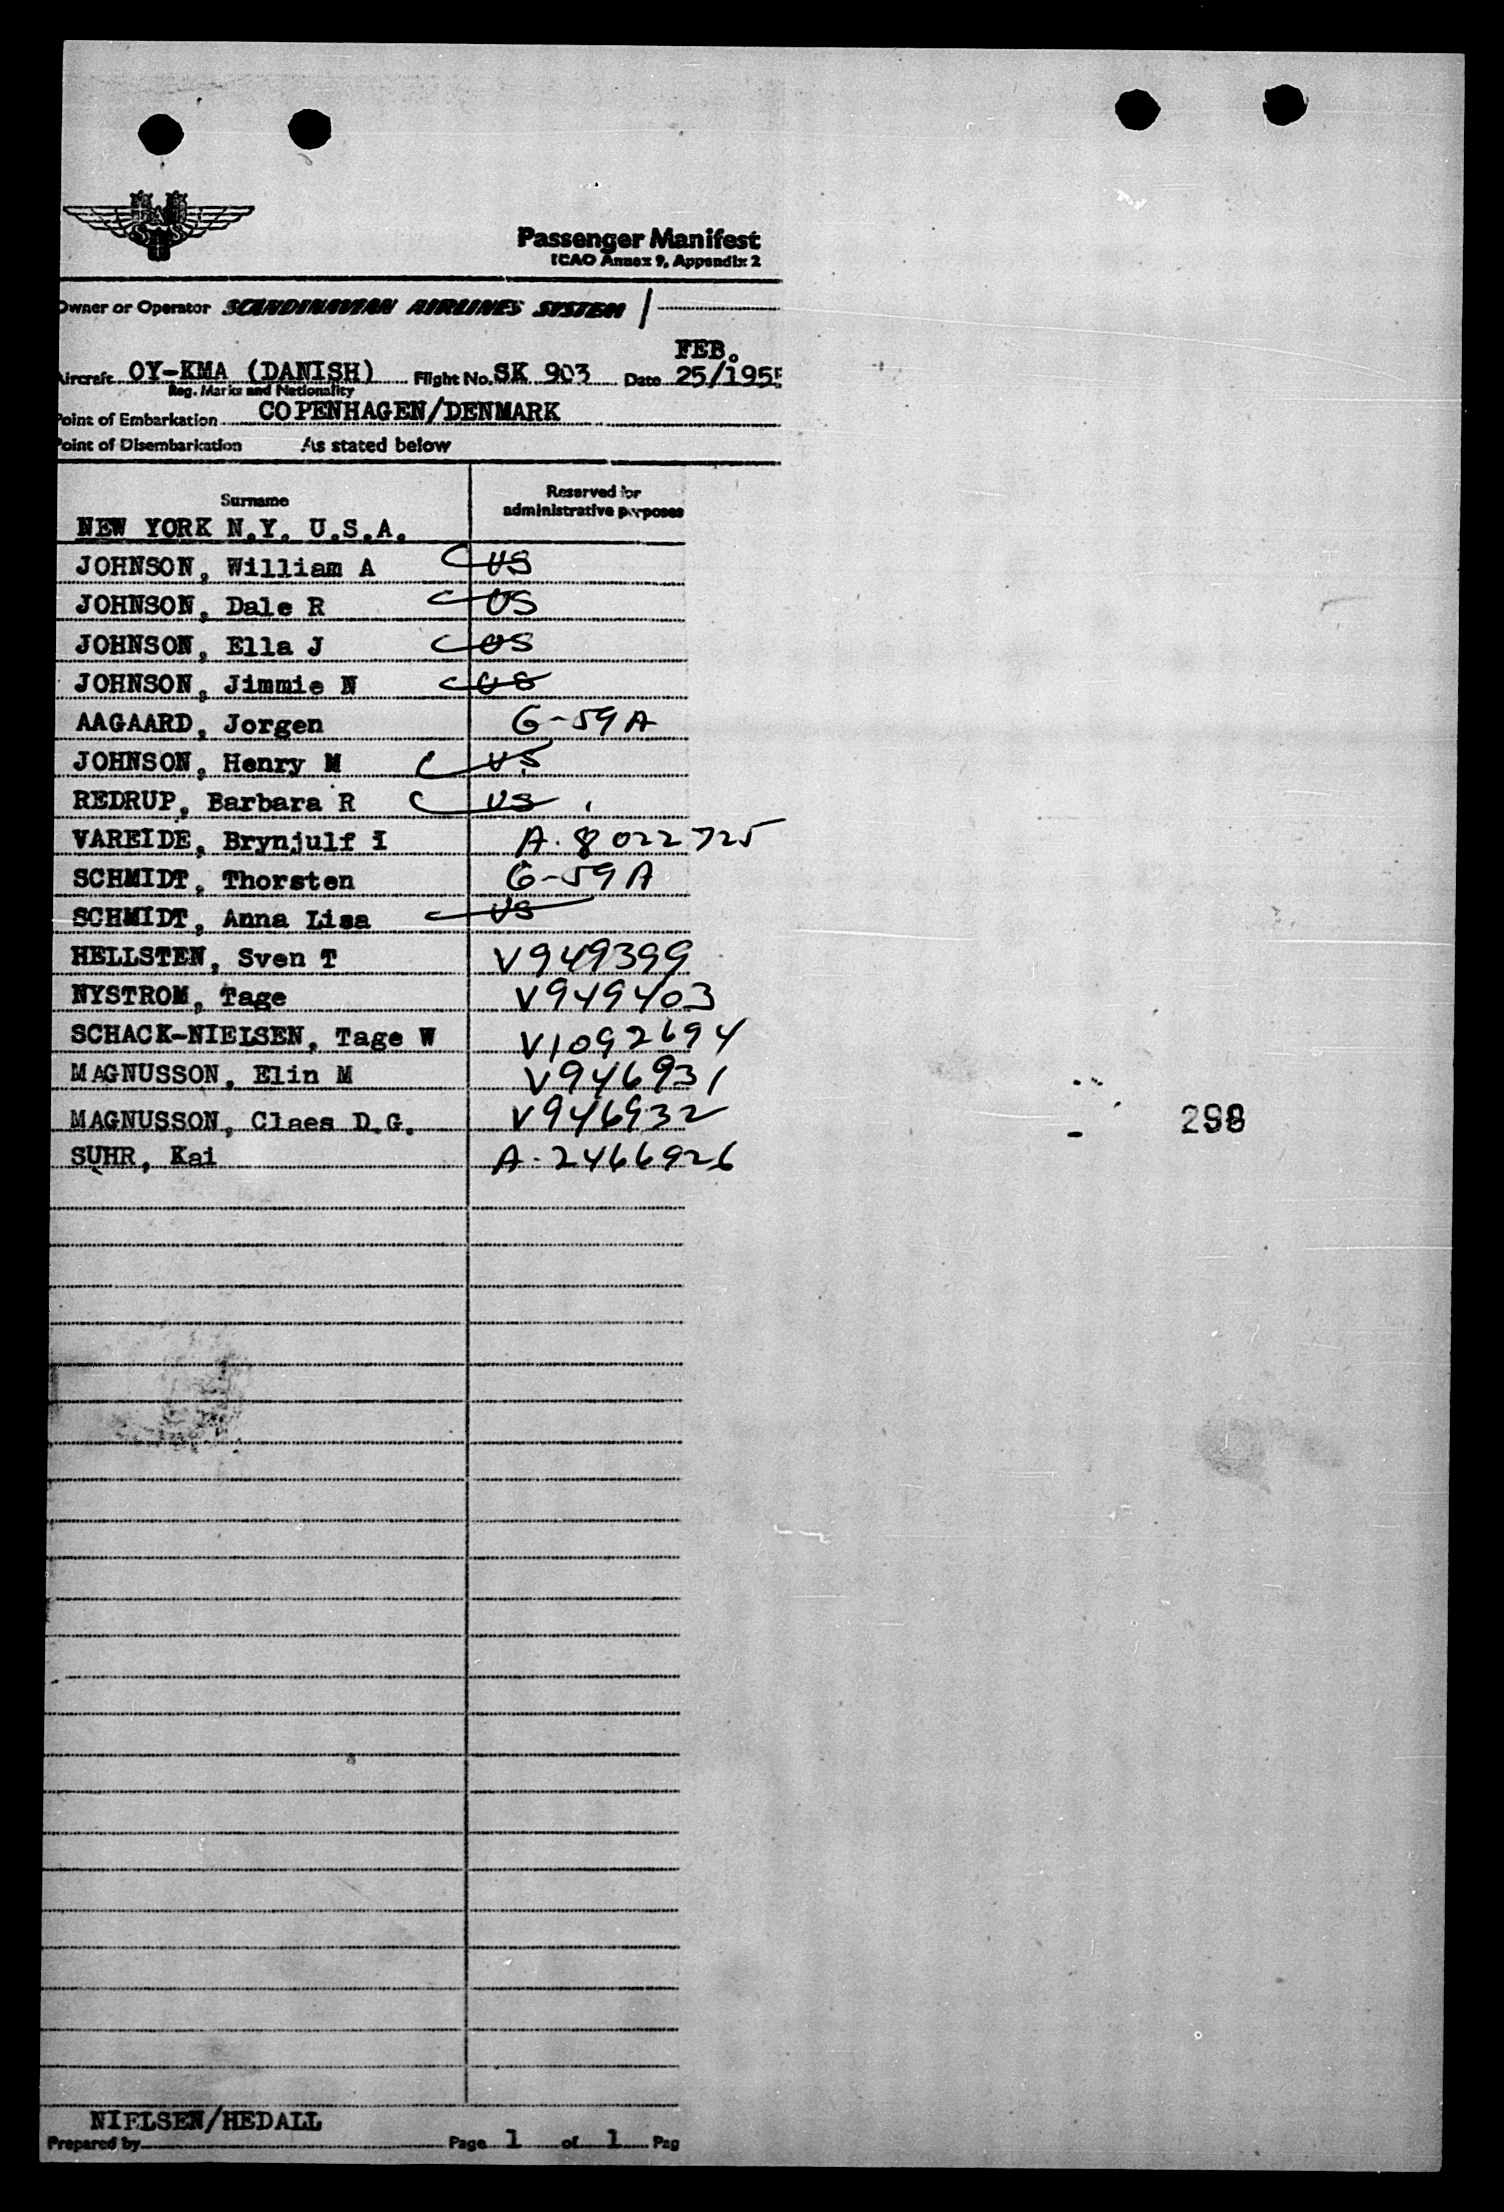 Passenger Manifest
ICAO Annex 9, Appendix 2
Owner or Operator SCANDINAVIAN AIRLINES SYSTEM /
FEB.
Aircraft OY-KMA (DANISH) Flight No. SK 903 Date 25/1955
Reg. Marks and Nationality
Point of Embarkation COPENHAGEN/DENMARK
Point of Disembarkation As stated below
Surname Reserved for administrative purposes
NEW YORK N.Y. U.S.A.
JOHNSON, William A US
JOHNSON, Dale R US
JOHNSON, Ella J US
JOHNSON, Jimmie N US
AAGAARD, Jorgen G-59A
JOHNSON, Henry M US
REDRUP, Barbara R US
VAREIDE, Brynjulf I A. 8022725
SCHMIDT, Thorsten G-59A
SCHMIDT, Anna Lisa US
HELLSTEN, Sven T V949399
NYSTROM, Tage V949403
SCHACK-NIELSEN, Tage W V1092694
MAGNUSSON, Elin M V946931
MAGNUSSON, Claes D.G. V946932
298
SUHR, Kai A-2466926
NIELSEN/HEDALL
Prepared by Page 1 of 1 Pag